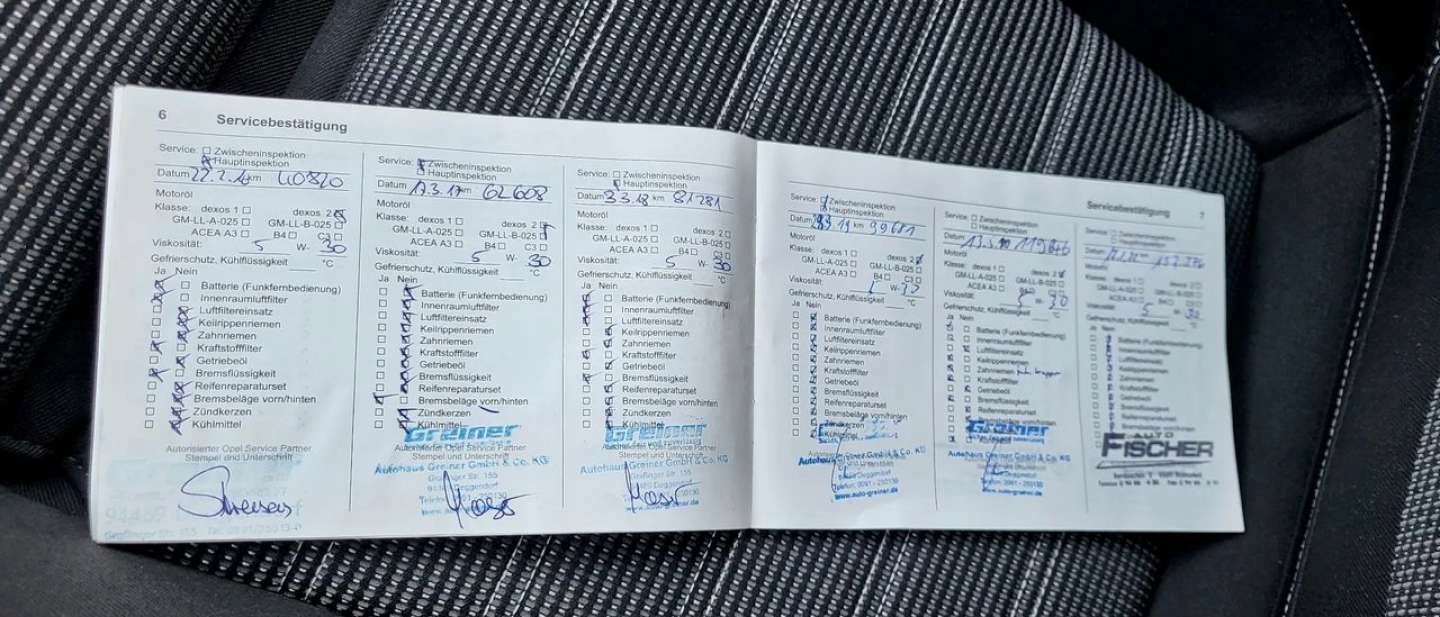 6 Servicebestätigung
Service: Zwischeninspektion
Hauptinspektion
Datum km 40820
Motoröl
Klasse: dexos 1 dexos 2
GM-LL-A-025 GM-LL-B-025
ACEA A3 B4 C3
Viskosität: 5 W- 30
Gefrierschutz, Kühlflüssigkeit °C
Ja Nein
Batterie (Funkfernbedienung)
Innenraumluftfilter
Luftfiltereinsatz
Keilrippenriemen
Zahnriemen
Kraftstofffilter
Getriebeöl
Bremsflüssigkeit
Reifenreparaturset
Bremsbeläge vorn/hinten
Zündkerzen
Kühlmittel
Autorisierter Opel Service Partner
Stempel und Unterschrift
94469
Service: Zwischeninspektion
Hauptinspektion
Datum 17.3.17 km 62608
Motoröl
Klasse: dexos 1 dexos 2
GM-LL-A-025 GM-LL-B-025
ACEA A3 B4 C3
Viskosität: 5 W- 30
Gefrierschutz, Kühlflüssigkeit °C
Ja Nein
Batterie (Funkfernbedienung)
Innenraumluftfilter
Luftfiltereinsatz
Keilrippenriemen
Zahnriemen
Kraftstofffilter
Getriebeöl
Bremsflüssigkeit
Reifenreparaturset
Bremsbeläge vorn/hinten
Zündkerzen
Kühlmittel
Greiner
Autorisierter Opel Service Partner
Stempel und Unterschrift
Autohaus Greiner GmbH & Co. KG
Graflinger Str. 155
Service: Zwischeninspektion
Hauptinspektion
Datum 3.3.18 km 81281
Motoröl
Klasse: dexos 1 dexos 2
GM-LL-A-025 GM-LL-B-025
ACEA A3 B4 C3
Viskosität: 5 W- 30
Gefrierschutz, Kühlflüssigkeit °C
Ja Nein
Batterie (Funkfernbedienung)
Innenraumluftfilter
Luftfiltereinsatz
Keilrippenriemen
Zahnriemen
Kraftstofffilter
Getriebeöl
Bremsflüssigkeit
Reifenreparaturset
Bremsbeläge vorn/hinten
Zündkerzen
Kühlmittel
Greiner
Autorisierter Opel Service Partner
Stempel und Unterschrift
Autohaus Greiner GmbH & Co. KG
Graflinger Str. 155
Servicebestätigung 7
Service: Zwischeninspektion
Hauptinspektion
Datum km 99681
Motoröl
Klasse: dexos 1 dexos 2
GM-LL-A-025 GM-LL-B-025
ACEA A3 B4 C3
Viskosität: W-
Gefrierschutz, Kühlflüssigkeit °C
Ja Nein
Batterie (Funkfernbedienung)
Innenraumluftfilter
Luftfiltereinsatz
Keilrippenriemen
Zahnriemen
Kraftstofffilter
Getriebeöl
Bremsflüssigkeit
Reifenreparaturset
Bremsbeläge vorn/hinten
Zündkerzen
Kühlmittel
Autohaus Greiner GmbH & Co. KG
Deggendorf
Telefon: 0991 - 250130
www.auto-greiner.de
Service: Zwischeninspektion
Hauptinspektion
Datum km
Motoröl
Klasse: dexos 1 dexos 2
GM-LL-A-025 GM-LL-B-025
ACEA A3
Viskosität: 5 W- 30
Gefrierschutz, Kühlflüssigkeit °C
Ja Nein
Batterie (Funkfernbedienung)
Innenraumluftfilter
Luftfiltereinsatz
Keilrippenriemen
Zahnriemen
Kraftstofffilter
Getriebeöl
Bremsflüssigkeit
Reifenreparaturset
Bremsbeläge vorn/hinten
Zündkerzen
Greiner
Autohaus Greiner GmbH & Co. KG
Telefon: 0991 - 250130
www.auto-greiner.de
Service: Zwischeninspektion
Hauptinspektion
Datum km
Motoröl
Klasse: dexos 1 dexos 2
GM-LL-A-025 GM-LL-B-025
ACEA A3 B4
Viskosität: 5 W- 30
Gefrierschutz, Kühlflüssigkeit °C
Ja Nein
Batterie (Funkfernbedienung)
Innenraumluftfilter
Luftfiltereinsatz
Keilrippenriemen
Zahnriemen
Kraftstofffilter
Getriebeöl
Bremsflüssigkeit
Reifenreparaturset
Bremsbeläge vorn/hinten
AUTO
FISCHER